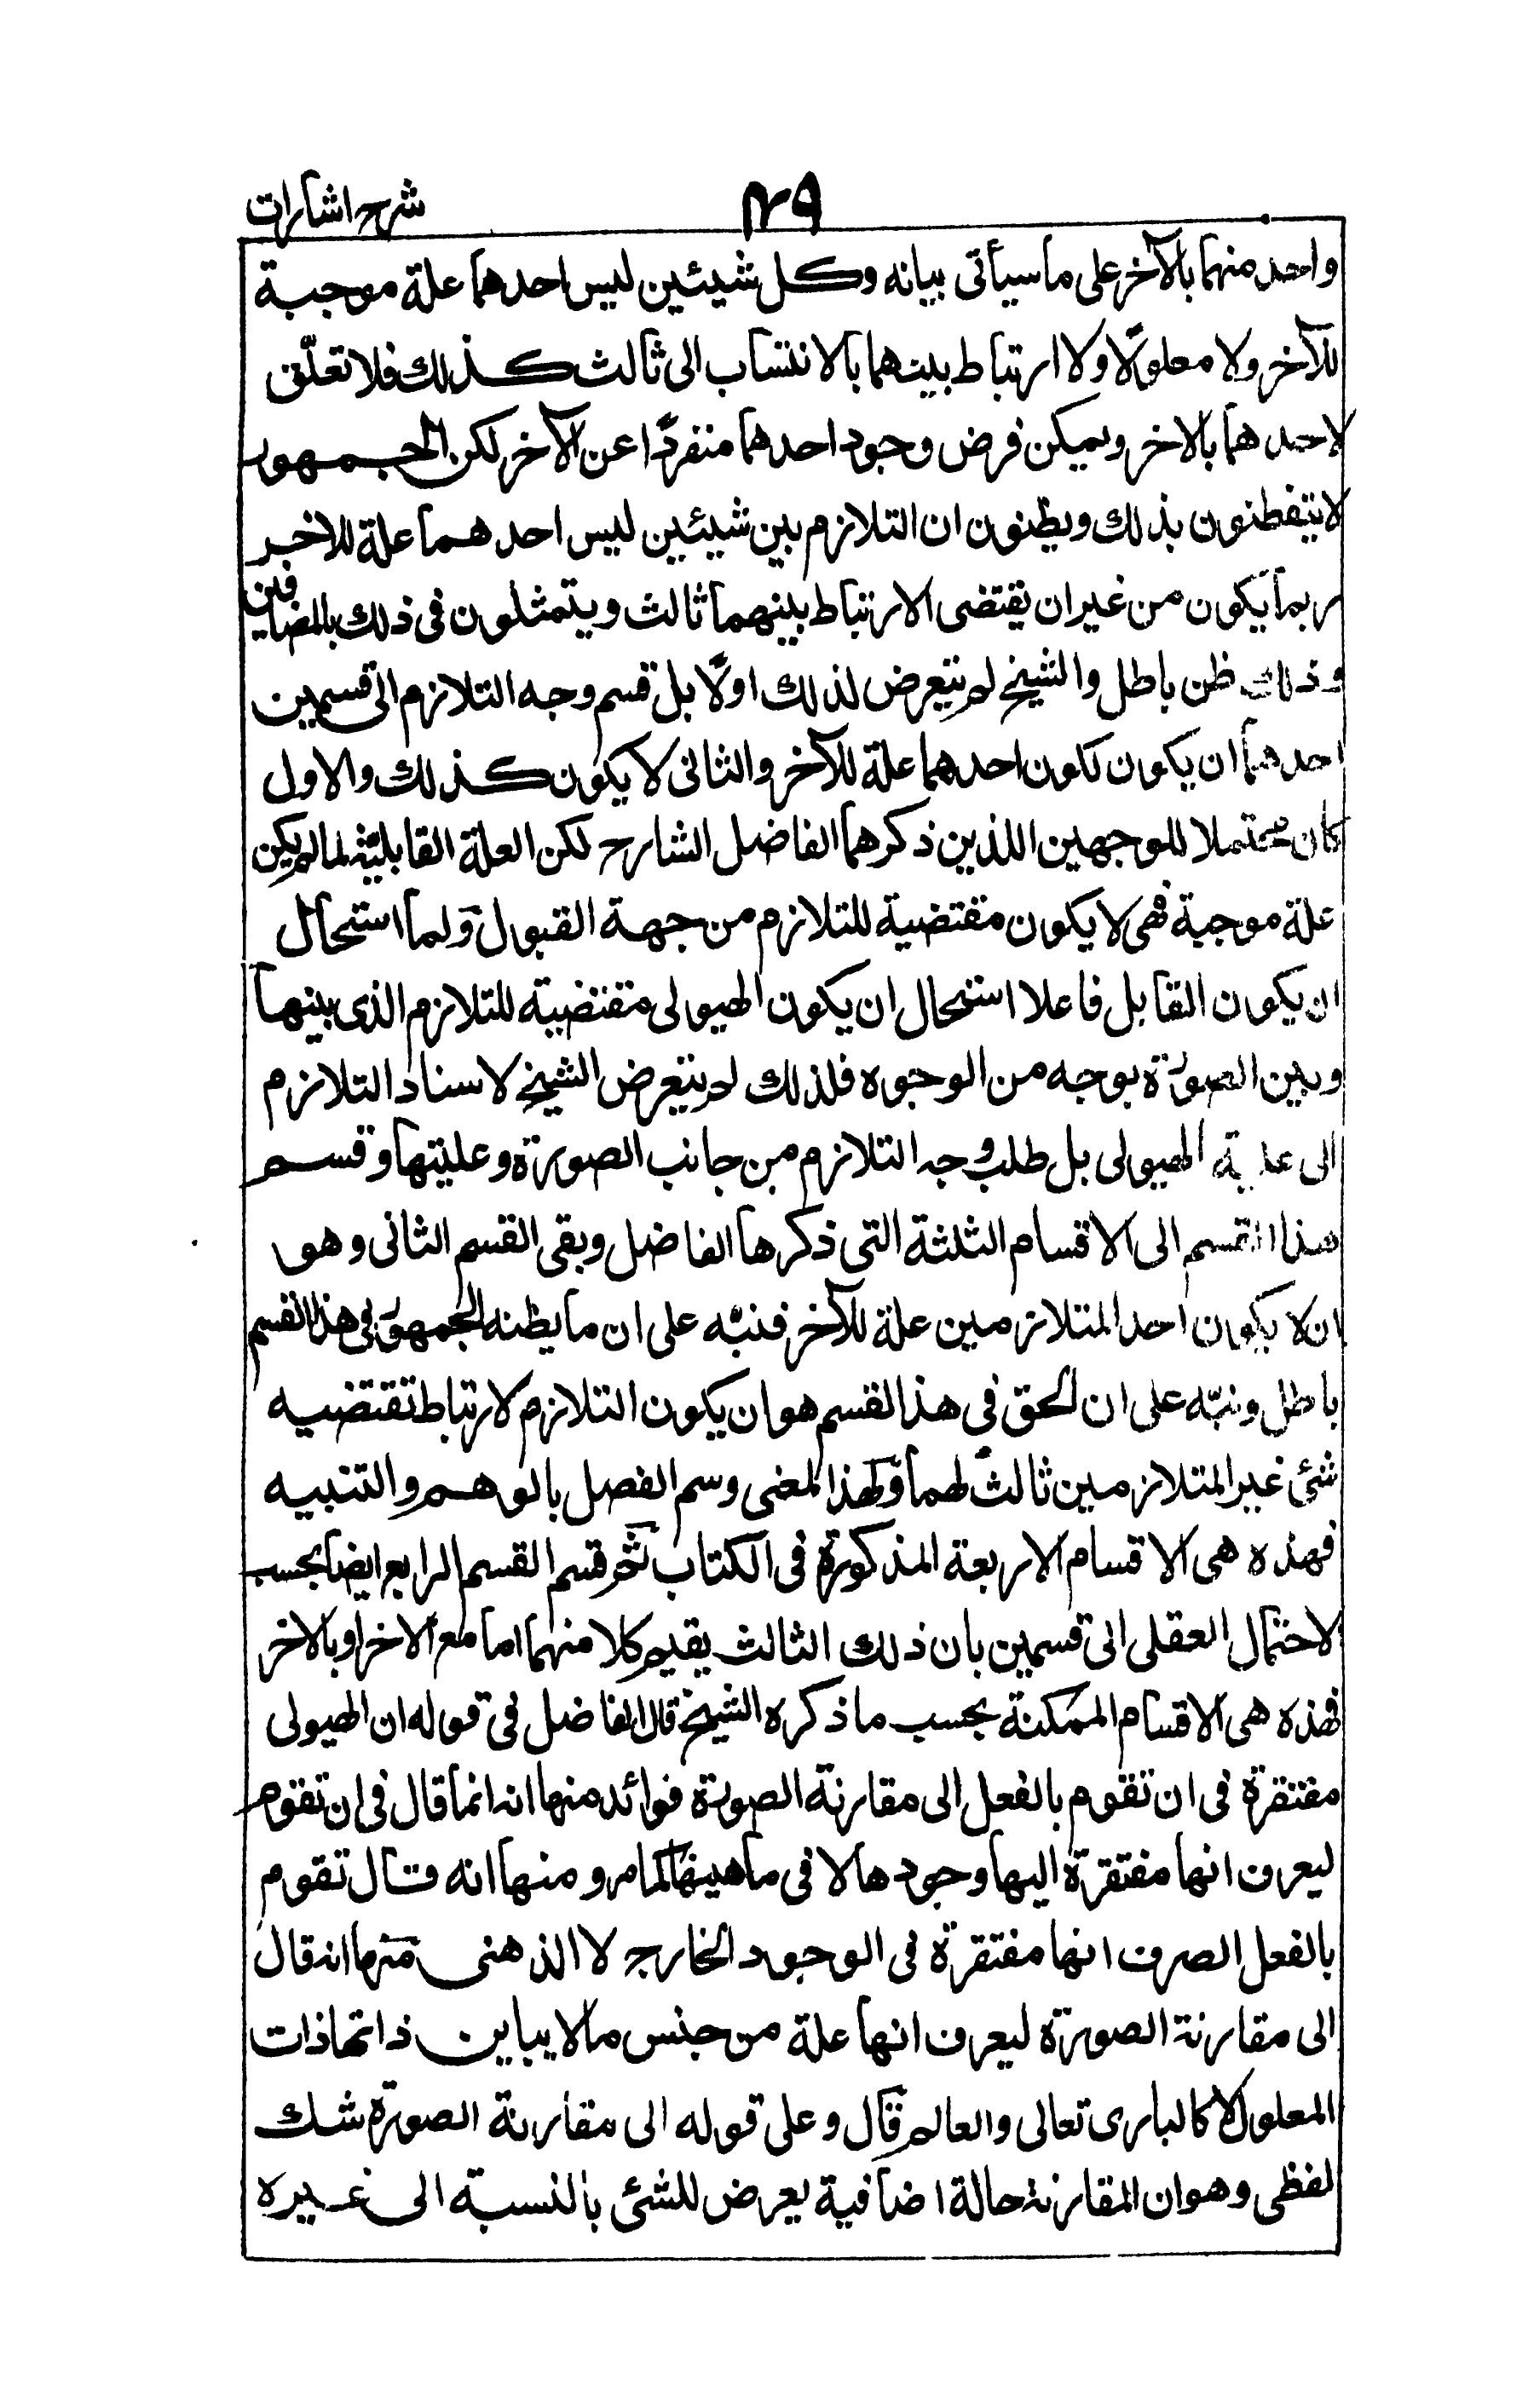 شرح اشارات
واحد منهما بالآخر على ما سيأتى بيانه وكل شيئين ليس احدهما علة موجبة
للآخر ولا معلولًا ولا ارتباط بينهما بالانتساب الى ثالث كذلك فلا تعلّق
لاحدهما بالاخر ويمكن فرض وجود احدهما منفردًا عن الآخر لكن الجمهور
لا يتفطنون بذلك ويظنون ان التلازم بين شيئين ليس احدهما علة للاخر
ربما يكون من غير ان يقتضى الارتباط بينهما ثالث ويتمثلون فى ذلك بالمضافين
وذلك ظن باطل والشيخ لم يتعرض لذلك اولًا بل قسم وجه التلازم الى قسمين
احدهما ان يكون لكون احدهما علة للآخر والثانى لا يكون كذلك والاول
كان محتملا للوجهين اللذين ذكرهما الفاضل الشارح لكن العلة القابليّة لما لم يكن
علة موجبة فهى لا يكون مقتضية للتلازم من جهة القبول ولما استحال
ان يكون القابل فاعلا استحال ان يكون الهيولى مقتضية للتلازم الذى بينها
وبين الصورة بوجه من الوجوه فلذلك لم يتعرض الشيخ لاسناد التلازم
الى علية الهيولى بل طلب وجه التلازم من جانب الصورة وعليتها وقسم
هذا القسم الى الاقسام الثلثة التى ذكرها الفاضل وبقى القسم الثانى وهو
ان لا يكون احد المتلازمين علة للآخر فنبّه على ان ما يظنه الجمهور فى هذا القسم
باطل ونبّه على ان الحق فى هذا القسم هو ان يكون التلازم لارتباط تقتضيه
شئ غير المتلازمين ثالث لهما ولهذا المعنى وسم الفصل بالوهم والتنبيه
فهذه هى الاقسام الاربعة المذكورة فى الكتاب ثم قسم القسم الرابع ايضا بحسب
لاحتمال العقلى الى قسمين بان ذلك الثالث يقيم كلا منهما اما مع الاخر او بالاخر
فهذه هى الاقسام الممكنة بحسب ما ذكره الشيخ قال الفاضل فى قوله ان الهيولى
مفتقرة فى ان تقوم بالفعل الى مقارنة الصورة فوائد منها انه انما قال فى ان تقوم
ليعرف انها مفتقرة اليها وجودها لا فى ماهيتها كما مر ومنها انه قال تقوم
بالفعل الصرف انها مفتقرة فى الوجود الخارج لا الذهنى منها انه قال
الى مقارنة الصورة ليعرف انها علة من جنس ما لا يباين ذاتها ذات
المعلول لا كالبارى تعالى والعالم قال وعلى قوله الى مقارنة الصورة شك
لفظى وهو ان المقارنة حالة اضافية يعرض للشئ بالنسبة الى غيره